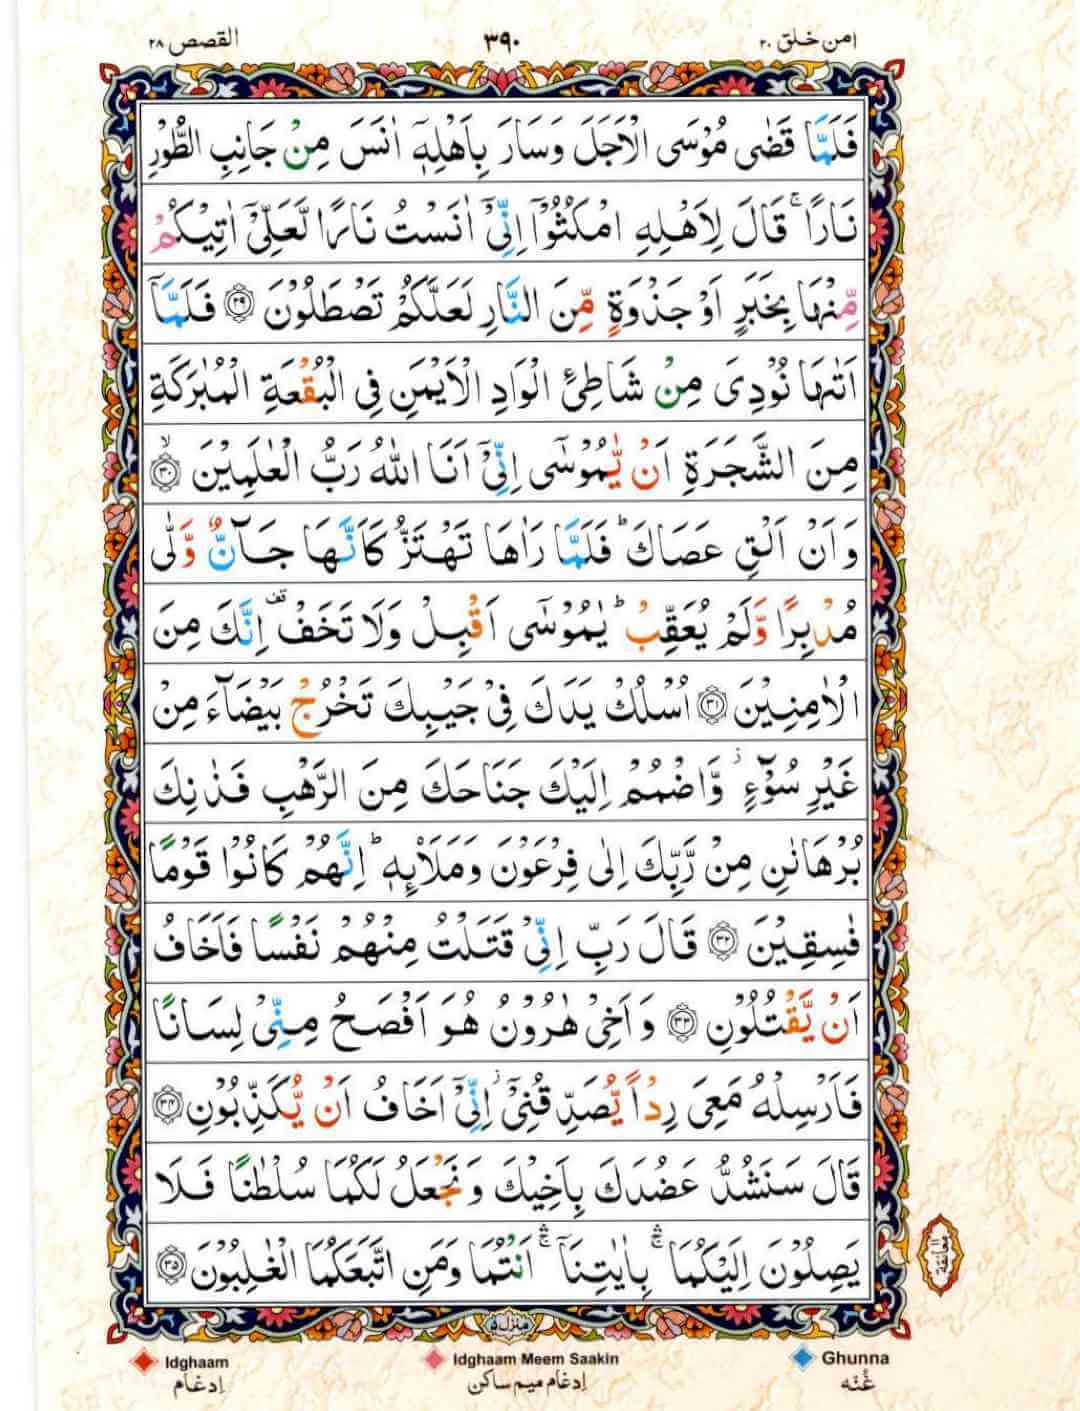 امن خلق ۲۰ ۳۹۰ القصص ۲۸
فَلَمَّا قَضٰى مُوْسَى الْاَجَلَ وَسَارَ بِاَهْلِهٖۤ اٰنَسَ مِنْ جَانِبِ الطُّوْرِ
نَارًا ۚ قَالَ لِاَهْلِهِ امْكُثُوْۤا اِنِّىْۤ اٰنَسْتُ نَارًا لَّعَلِّىْۤ اٰتِيْكُمْ
مِّنْهَا بِخَبَرٍ اَوْ جَذْوَةٍ مِّنَ النَّارِ لَعَلَّكُمْ تَصْطَلُوْنَ ﴿۲۹﴾ فَلَمَّاۤ
اَتٰٮهَا نُوْدِىَ مِنْ شَاطِیٴِ الْوَادِ الْاَيْمَنِ فِى الْبُقْعَةِ الْمُبٰرَكَةِ
مِنَ الشَّجَرَةِ اَنْ يّٰمُوْسٰٓى اِنِّىْۤ اَنَا اللّٰهُ رَبُّ الْعٰلَمِيْنَ ۙ﴿۳۰﴾
وَاَنْ اَلْقِ عَصَاكَ ؕ فَلَمَّا رَاٰهَا تَهْتَزُّ كَاَنَّهَا جَآنٌّ وَّلّٰى
مُدْبِرًا وَّلَمْ يُعَقِّبْ ؕ يٰمُوْسٰٓى اَقْبِلْ وَلَا تَخَفْ ۫ اِنَّكَ مِنَ
الْاٰمِنِيْنَ ﴿۳۱﴾ اُسْلُكْ يَدَكَ فِىْ جَيْبِكَ تَخْرُجْ بَيْضَآءَ مِنْ
غَيْرِ سُوْٓءٍ ۖ وَّاضْمُمْ اِلَيْكَ جَنَاحَكَ مِنَ الرَّهْبِ فَذٰنِكَ
بُرْهَانٰنِ مِنْ رَّبِّكَ اِلٰى فِرْعَوْنَ وَمَلَا۟ئِهٖ ؕ اِنَّهُمْ كَانُوْا قَوْمًا
فٰسِقِيْنَ ﴿۳۲﴾ قَالَ رَبِّ اِنِّىْ قَتَلْتُ مِنْهُمْ نَفْسًا فَاَخَافُ
اَنْ يَّقْتُلُوْنِ ﴿۳۳﴾ وَاَخِىْ هٰرُوْنُ هُوَ اَفْصَحُ مِنِّىْ لِسَانًا
فَاَرْسِلْهُ مَعِىَ رِدْاً يُّصَدِّقُنِىْۤ ۖ اِنِّىْۤ اَخَافُ اَنْ يُّكَذِّبُوْنِ ﴿۳۴﴾
قَالَ سَنَشُدُّ عَضُدَكَ بِاَخِيْكَ وَنَجْعَلُ لَكُمَا سُلْطٰنًا فَلَا
يَصِلُوْنَ اِلَيْكُمَا ۛۚ بِاٰيٰتِنَاۤ ۛۚ اَنْتُمَا وَمَنِ اتَّبَعَكُمَا الْغٰلِبُوْنَ ﴿۳۵﴾
معانقة ۱۱
منزل ۵
Idghaam Idghaam Meem Saakin Ghunna
إدغام إدغام ميم ساكن غُنّه